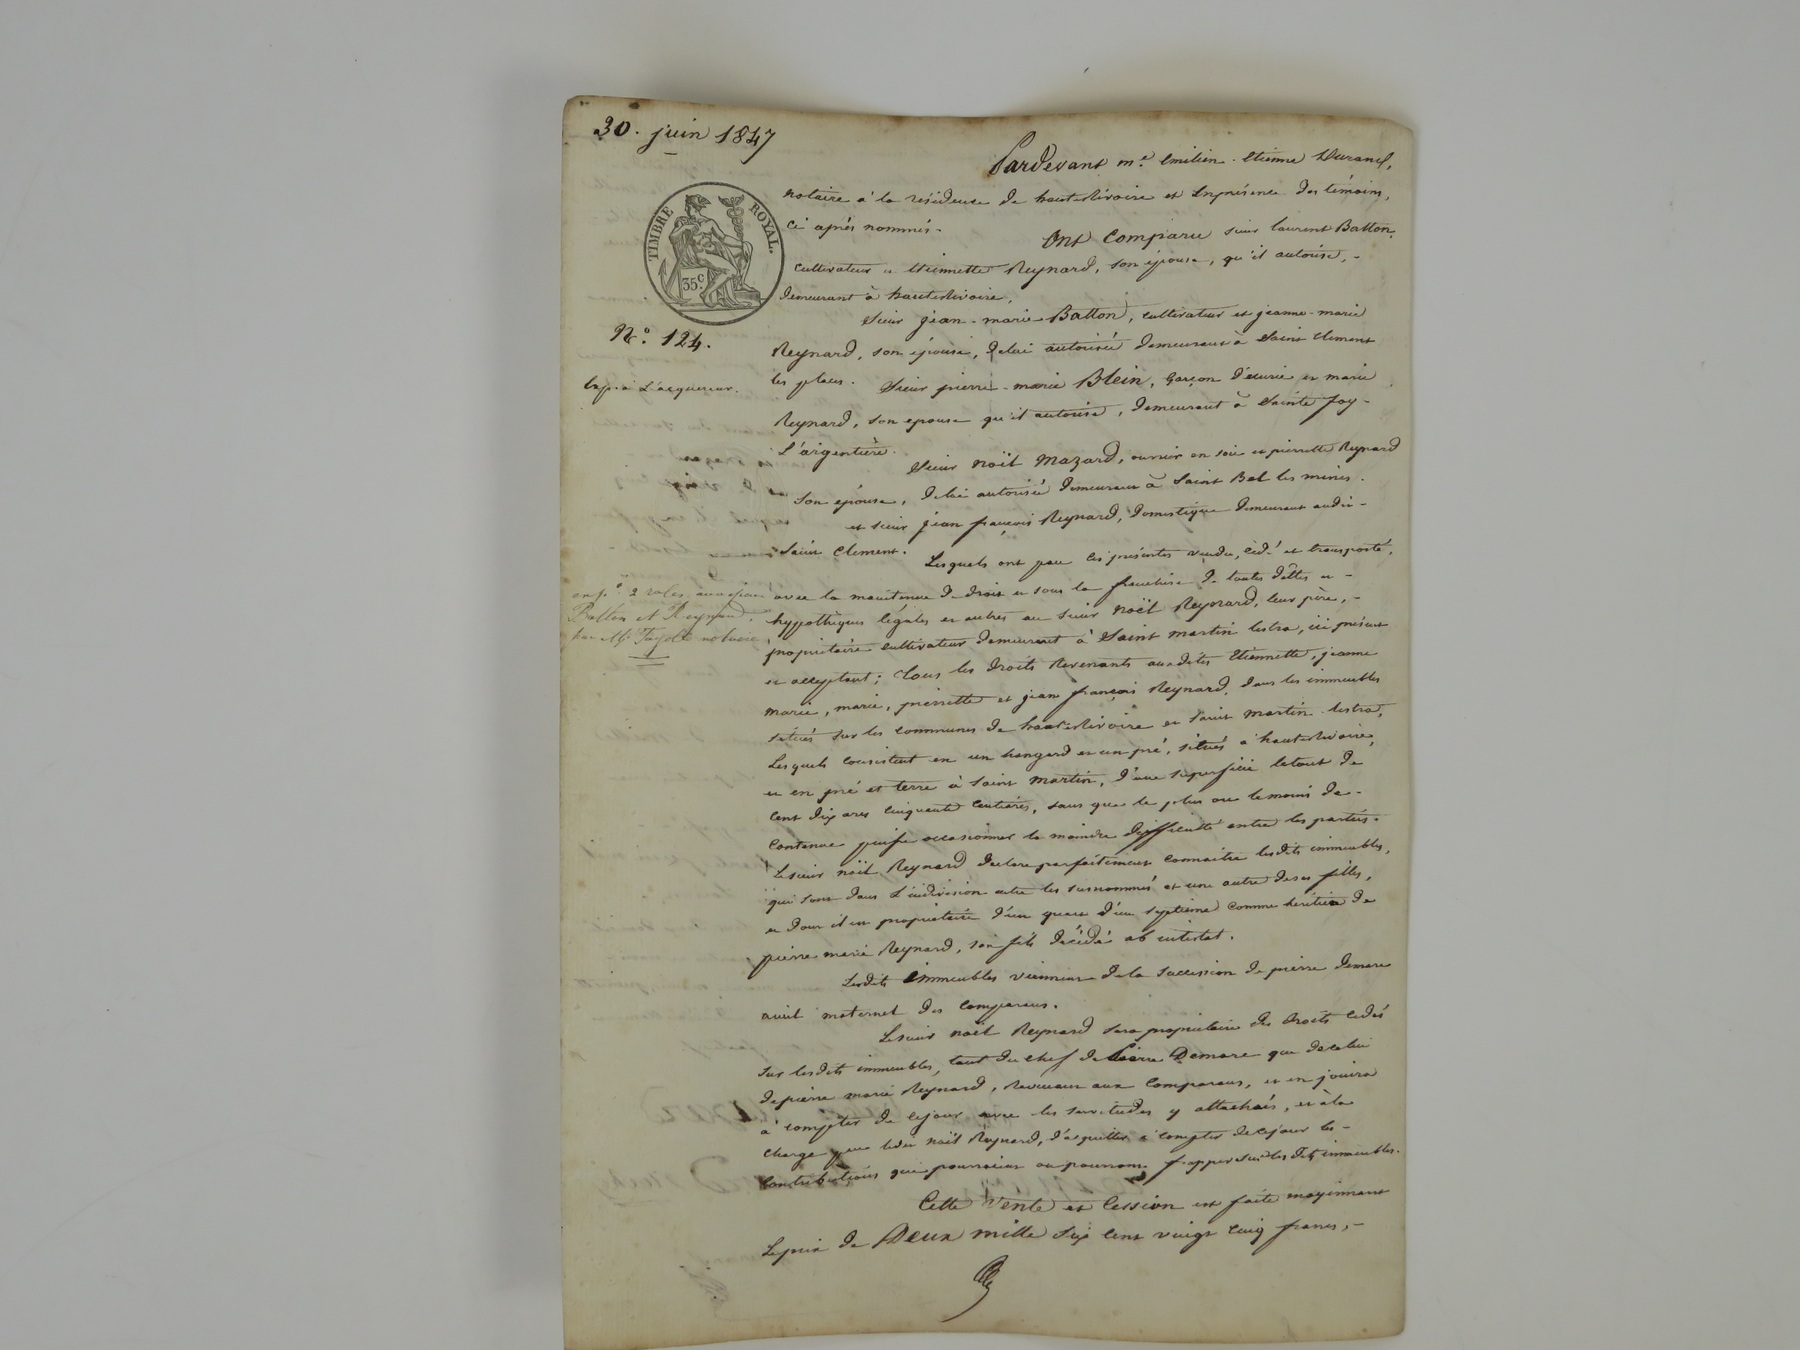 30. juin 1847
TIMBRE ROYAL.
35c.
N.º 124.
exp. à L'acquereur.
exp.º 2 roles aux époux
Batton et Reynard,
par Mr Fayolle notaire
Pardevant m.e Emilien Etienne Durand,
notaire à la résidence de hauterivoire et en présence des témoins,
ci après nommés.
Ont Comparu sieur laurent Batton,
Cultivateur et Etiennette Reynard, son épouse, qu'il autorise,
demeurant à hauterivoire,
Sieur jean-marie Batton, cultivateur et jeanne-marie
Reynard, son épouse, de lui autorisée demeurant à Saint Clement
les places. Sieur pierre-marie Blein, garçon d'écurie et marie
Reynard, son epouse qu'il autorise, demeurant à Sainte foy-
L'argentière.
Sieur noël Mazard, ouvrier en soie et pierrette Reynard
son épouse, de lui autorisée demeurant à Saint Bel les mines.
et sieur jean françois Reynard, domestique demeurant audit-
Saint Clement.
Lesquels ont par ces présentes vendu, cédé et transporté,
avec la maintenue de droit et sous la franchise de toutes dettes et
hyppothèques légales et autres au sieur noël Reynard, leur père,
propriétaire cultivateur demeurant à Saint martin lestra, ici présent
et acceptant; Tous les droits Revenants auxdites Etiennette, jeanne
marie, marie, pierrette et jean françois Reynard, dans les immeubles
situés sur les communes de hauterivoire et saint martin lestra,
Lesquels consistent en un hangard et un pré, situés à hauterivoire,
et en pré et terre à saint martin, d'une superficie letout de
Cent dix ares cinquante centiares, sans que le plus ou le moins de
Contenue puisse occasionner la moindre difficulté entre les parties.
Le sieur noël Reynard declare parfaitement connaitre lesdits immeubles,
qui sont dans L'indivision entre les susnommés et une autre de ses filles,
et dont il est propriétaire d'un quart d'un septieme comme héritier de
pierre marie Reynard, son fils décédé ab intestat.
Lesdits immeubles viennent de la succession de pierre Demare
aieul maternel des comparans.
Le sieur noël Reynard sera propriétaire des droits cédés
sur lesdits immeubles, tant du chef de pierre Demare que de celui
de pierre marie Reynard, Revenant aux comparans, et en jouira
à compter de ce jour avec les servitudes y attachées, et à la
charge par ledit noël Reynard, d'acquitter à compter de ce jour les
Contributions qui pourraient ou pourront frapper sur lesdits immeubles.
Cette Vente et Cession est faite moyennant
Le prix de Deux mille Six Cent vingt cinq francs,